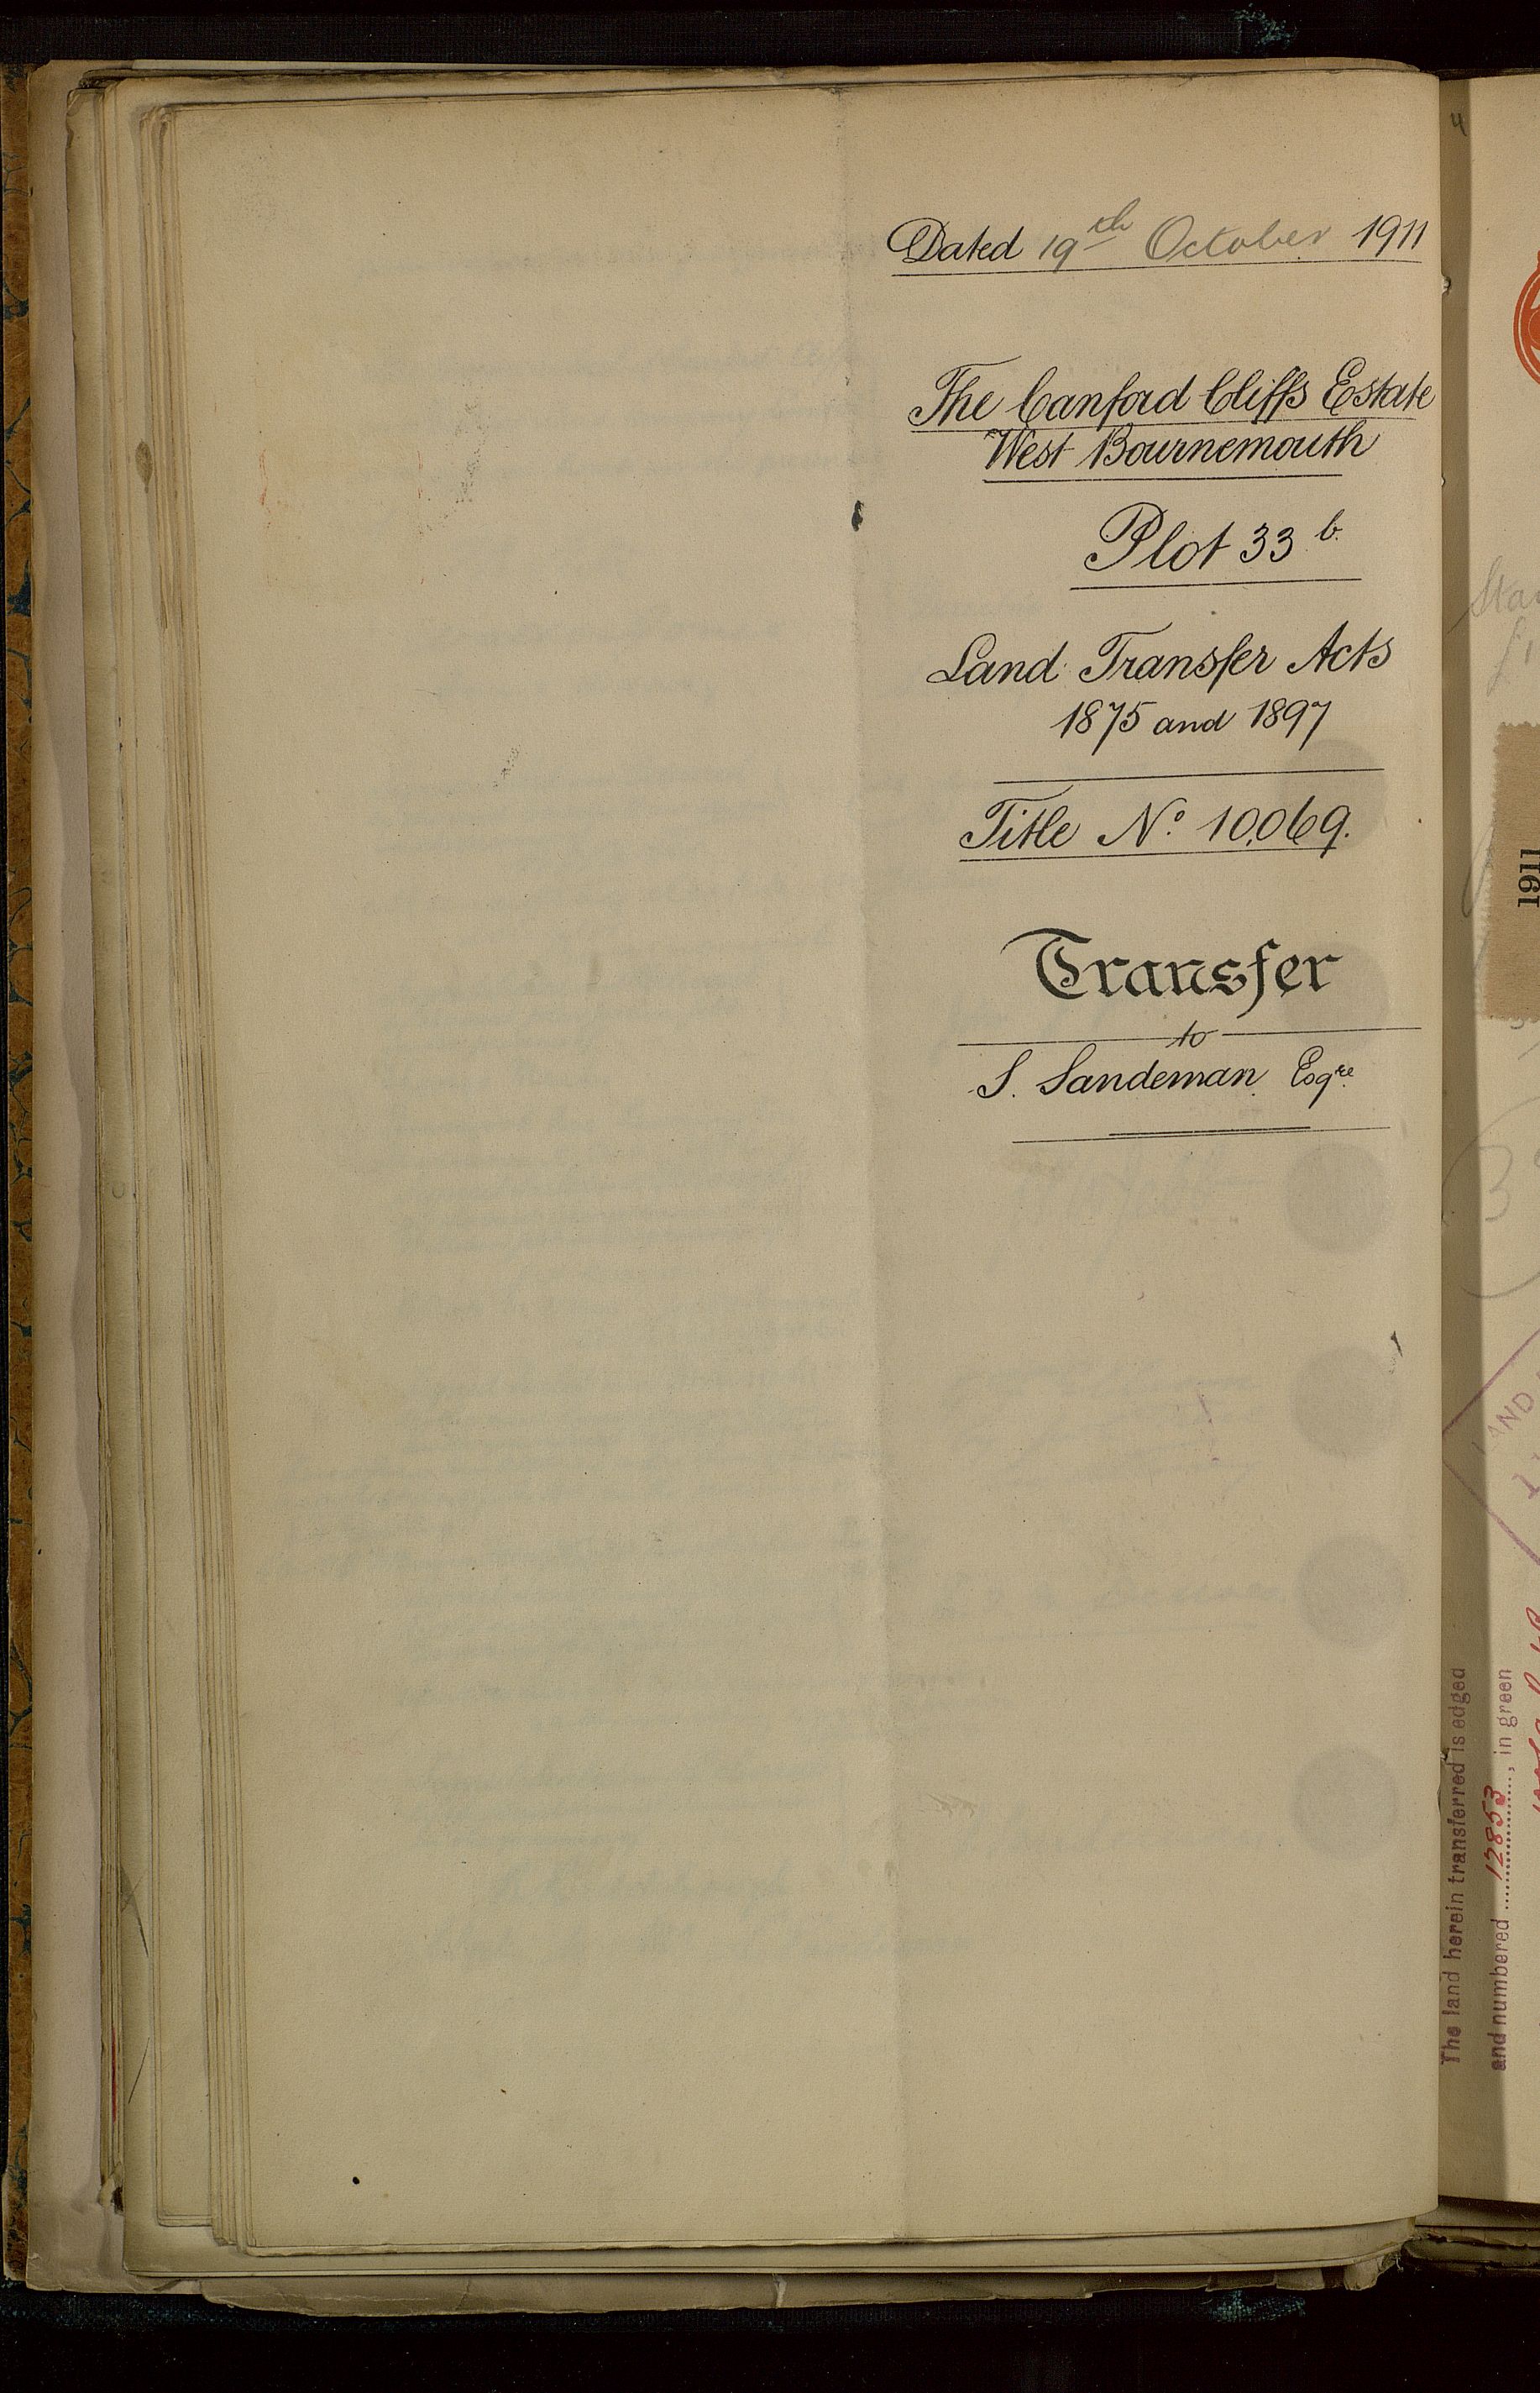 Dated 19th October 1911
The Canford Cliffs Estate
West Bournemouth
Plot 33 b.
Land Transfer Acts
1875 and 1897
Title No. 10,069.
Transfer
to
S. Sandeman Esqre.
1911
The land herein transferred is edged
and numbered 12853, in green